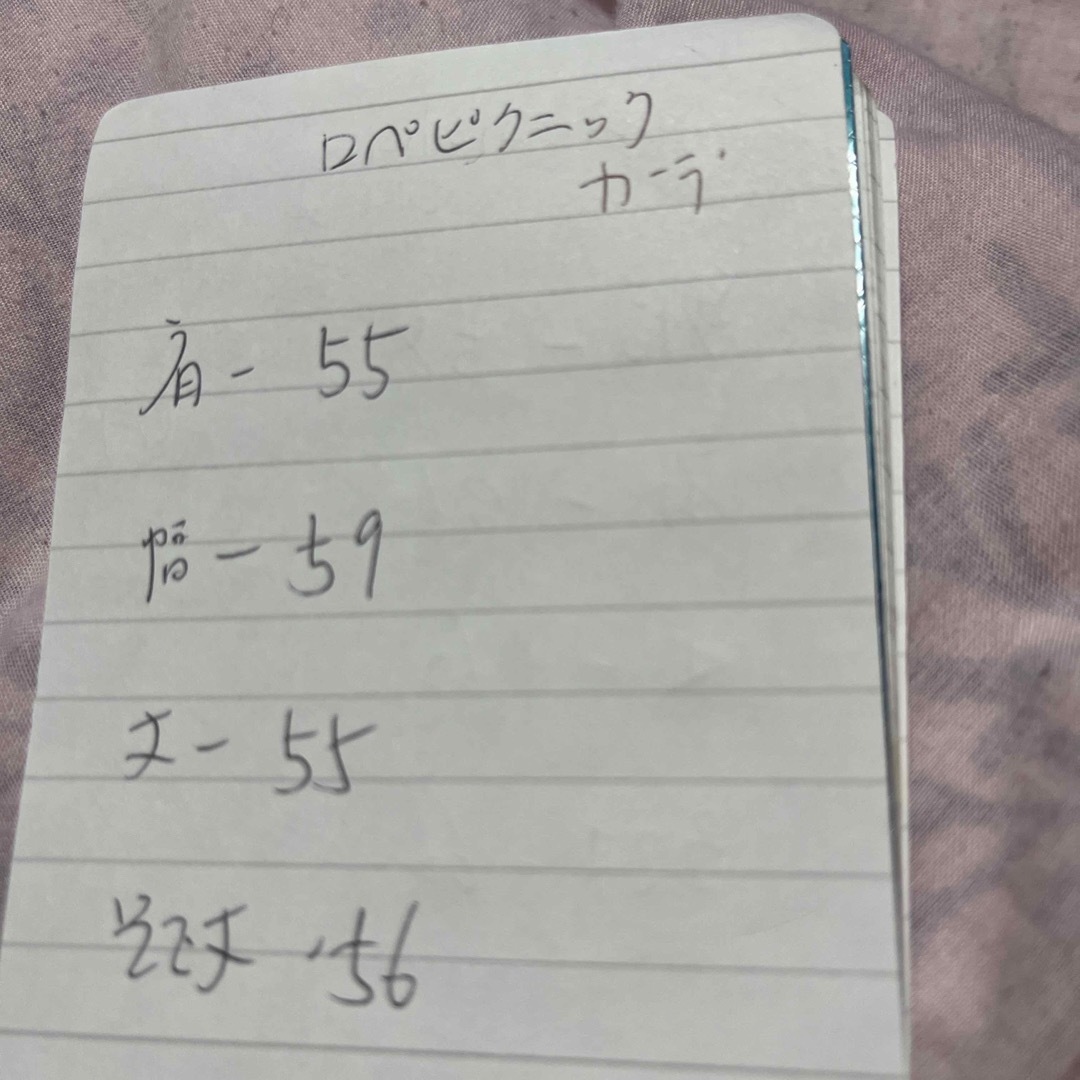 ロペピクニック
カーデ
肩ー 55
幅ー 59
丈ー 55
そで丈 ・56